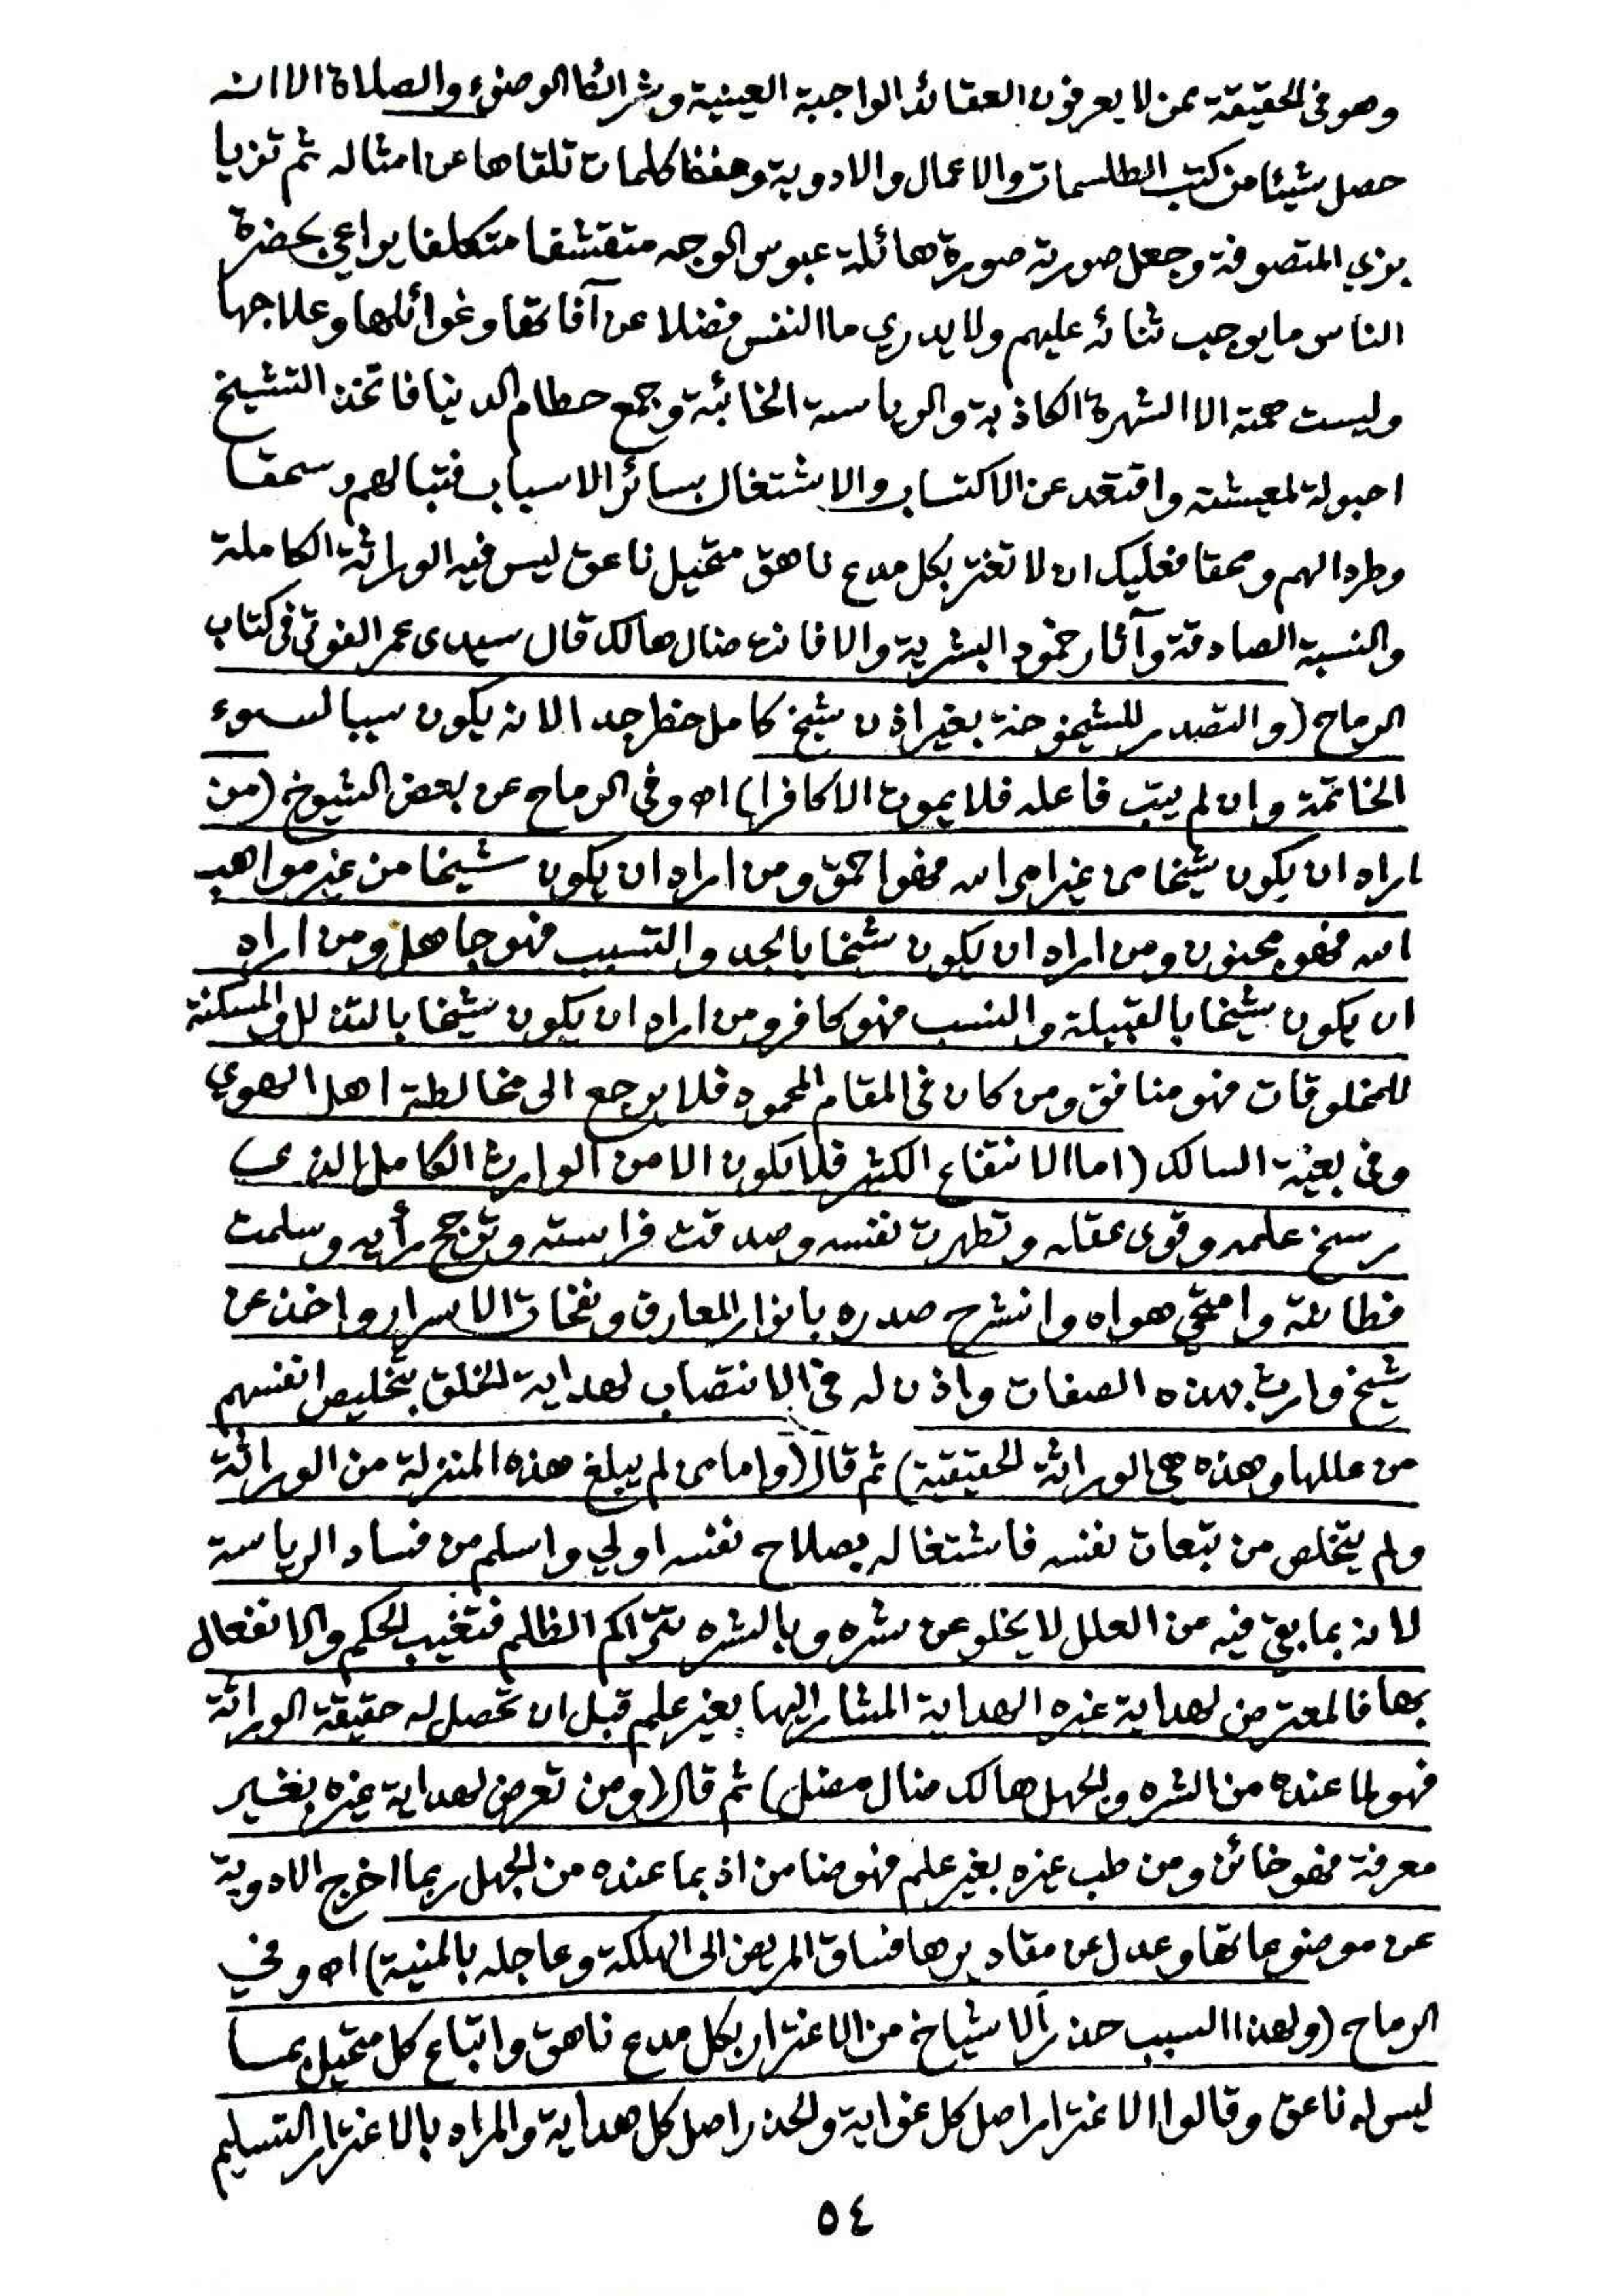 وهو فى الحقيقة ممن لا يعرفون العقائد الواجبة العينية وشرائط الوضوء والصلاة الا انه
حصل شيئا من كتب الطلسمات والاعمال والادوية وحفظ كلمات تلقاها عن امثاله ثم تزيا
بزي المتصوفة وجعل صورته صورة هائلة عبوس الوجه متقشفا متكلفا يراعي بحضرة
الناس ما يوجب ثنائه عليهم ولا يدري ما النفس فضلا عن آفاتها وغوائلها وعلاجها
وليست همته الا الشهرة الكاذبة والرياسة الخائبة وجمع حطام الدنيا فاتخذ التشيخ
احبولة لمعيشته واقتعد عن الاكتساب والاشتغال بسائر الاسباب فتبا لهم وسحقا
وطردا لهم ومحقا فعليك ان لا تغتر بكل مدع ناهق متحيل ناعق ليس فيه الوراثة الكاملة
والنسبة الصادقة وآثار خمود البشرية والا فانه ضال هالك قال سيدى عمر الفوتى فى كتاب
الرماح (والتصدر للشيخوخة بغير اذن شيخ كامل خطر جدا لانه يكون سببا لسوء
الخاتمة وان لم يتب فاعله فلا يموت الا كافرا) اه وفى الرماح عن بعض الشيوخ (من
اراد ان يكون شيخا من غير امر الله فهو احمق ومن اراد ان يكون شيخا من غير مواهب
الله فهو مجنون ومن اراد ان يكون شيخا بالجد والتسبب فهو جاهل ومن اراد
ان يكون شيخا بالقبيلة والنسب فهو كافر ومن اراد ان يكون شيخا بالتذلل والمسكنة
للمخلوقات فهو منافق ومن كان فى المقام المحمود فلا يرجع الى مخالطة اهل الهوي
وفى بغية السالك (اما الانتفاع الكثير فلا يكون الا من الوارث الكامل الذى
رسخ علمه وقوى عقله وتطهرت نفسه وصدقت فراسته وترجح رأيه وسلمت
فطانته وامتحى هواه وانشرح صدره بانوار المعارف ونفحات الاسرار واخذ عن
شيخ وارث بهذه الصفات واذن له فى الانتصاب لهداية الخلق بتخليص انفسهم
من عللها وهذه هى الوراثة الحقيقية) ثم قال (واما من لم يبلغ هذه المنزلة من الوراثة
ولم يتخلص من تبعات نفسه فاشتغاله بصلاح نفسه اولي واسلم من فساد الرياسة
لانه بما بقى فيه من العلل لا يخلو عن شره وبالشره تتراكم الظلم فتغيب الحكم والانفعال
بها فالمعترض لهداية غيره الهداية المشار اليها بغير علم قبل ان تحصل له حقيقة الوراثة
فهو لما عنده من الشره والجهل هالك ضال مضل) ثم قال (ومن تعرض لهداية غيره بغير
معرفة فهو خائن ومن طب غيره بغير علم فهو ضامن اذ بما عنده من الجهل ربما اخرج الادوية
عن موضوعاتها وعدل عن مقاديرها فساق المريض الى الهلكة وعاجله بالمنية) اه وفي
الرماح (ولهذا السبب حذر الاشياخ من الاغترار بكل مدع ناهق واتباع كل متحيل بما
ليس له ناعق وقالوا الاغترار اصل كل غواية والحذر اصل كل هداية والمراد بالاغترار التسليم
٥٤